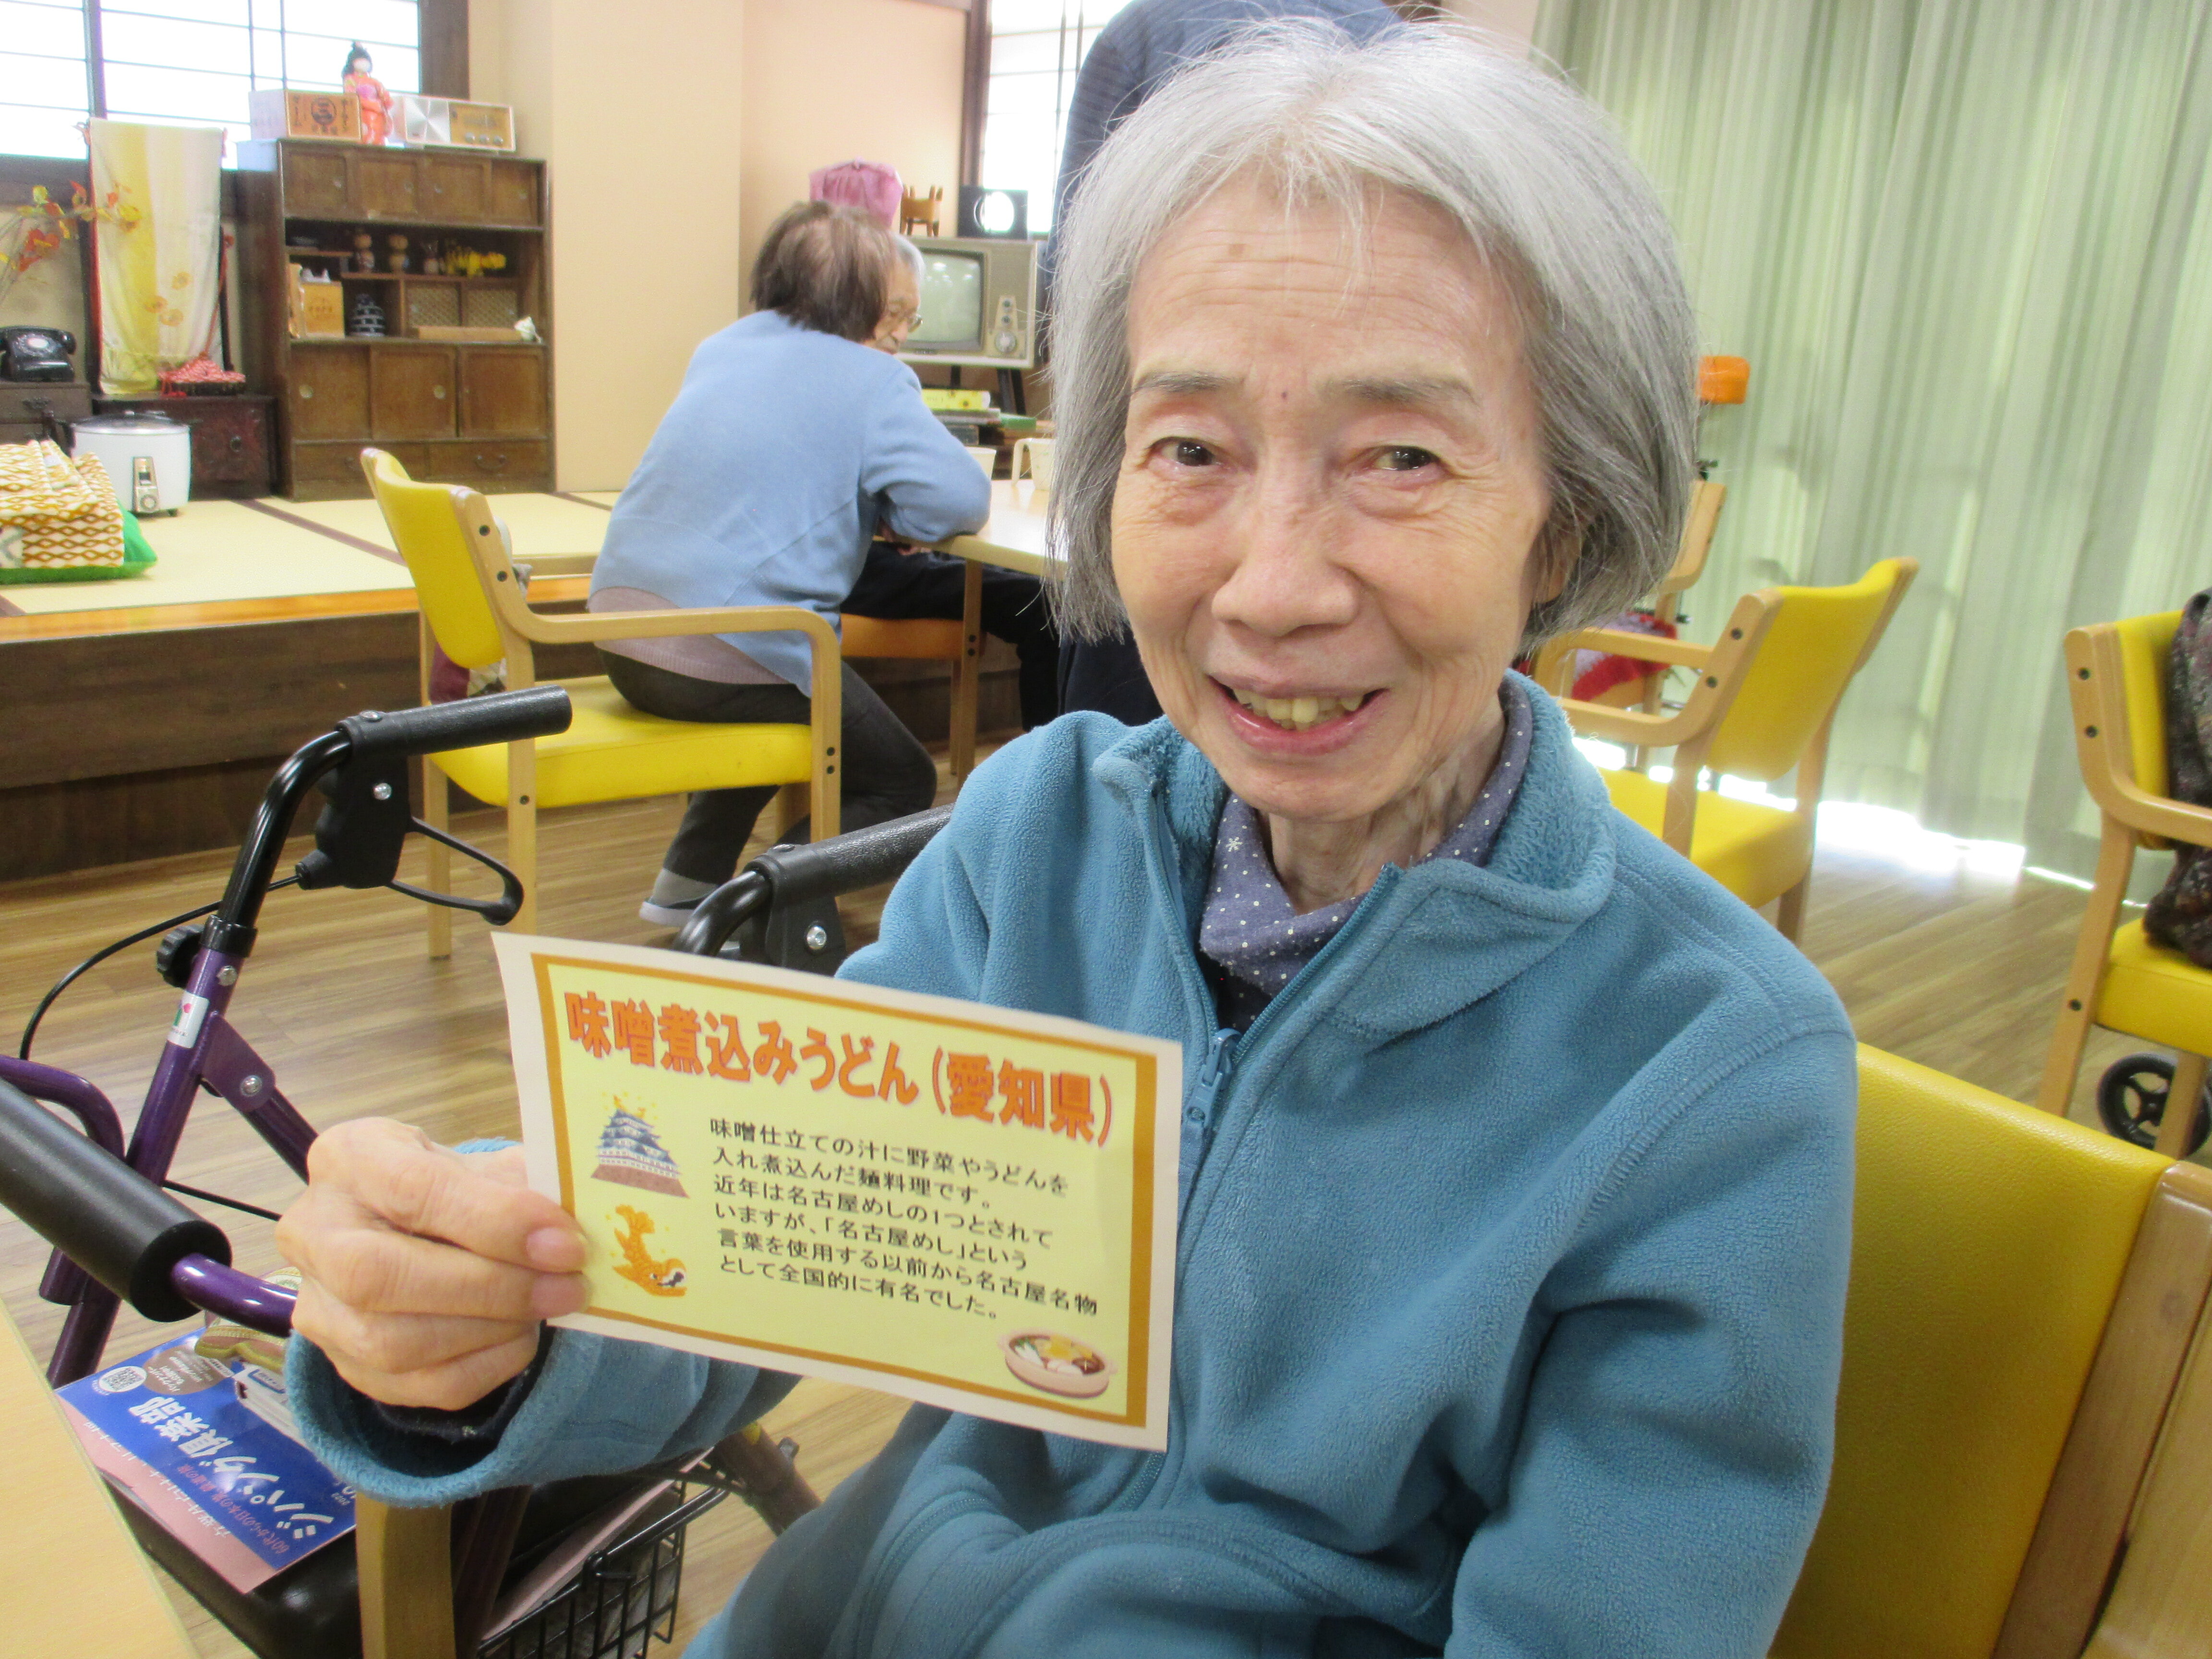 味噌煮込みうどん(愛知県)
味噌仕立ての汁に野菜やうどんを
入れ煮込んだ麺料理です。
近年は名古屋めしの1つとされて
いますが、「名古屋めし」という
言葉を使用する以前から名古屋名物
として全国的に有名でした。
ジパング倶楽部